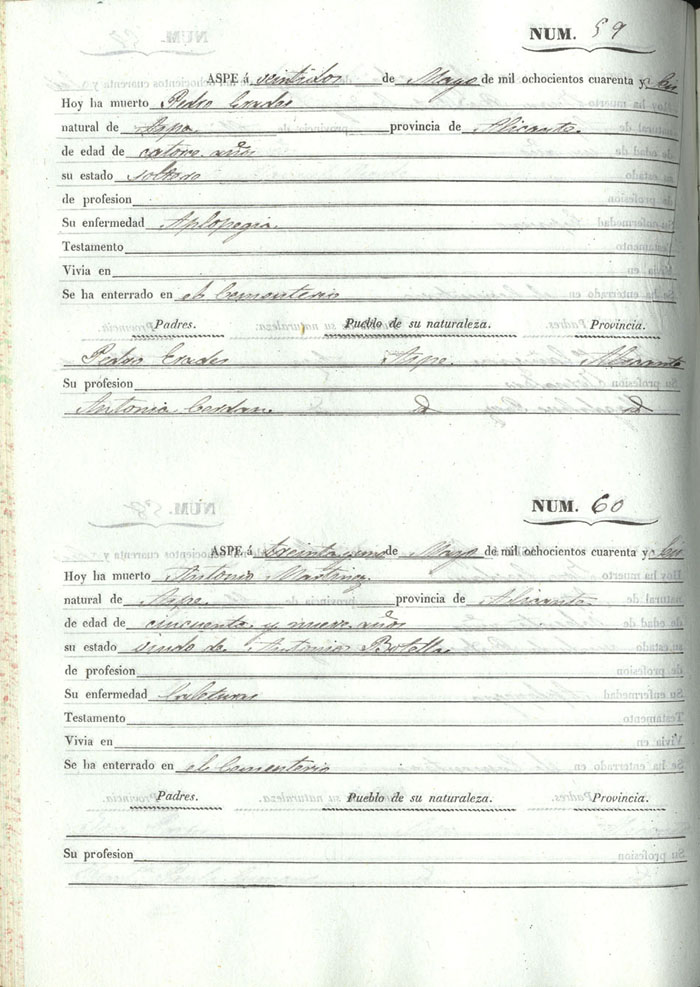 NUM. 59
ASPE á veintidos de Mayo de mil ochocientos cuarenta y
Hoy ha muerto Pedro Erades
natural de Aspe provincia de Alicante
de edad de catorce años
su estado soltero
de profesion
Su enfermedad Aplopegia.
Testamento
Vivia en
Se ha enterrado en el Cementerio
Padres. Pueblo de su naturaleza. Provincia.
Pedro Erades Aspe. Alicante
Su profesion
Antonia Cerdan
NUM. 60
ASPE á treinta y uno de Mayo de mil ochocientos cuarenta y
Hoy ha muerto Martinez
natural de Aspe. provincia de Alicante.
de edad de cincuenta y nueve años
su estado de Botella
de profesion
Su enfermedad Calentura
Testamento
Vivia en
Se ha enterrado en el Cementerio
Padres. Pueblo de su naturaleza. Provincia.
Su profesion